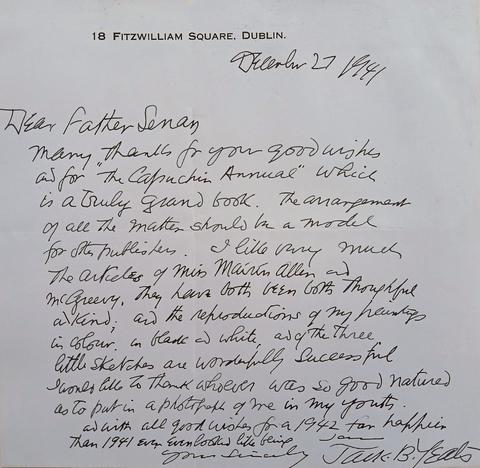 18 FITZWILLIAM SQUARE, DUBLIN.
December 27 1941
Dear Father Senan
Many thanks for your good wishes
and for "The Capuchin Annual" which
is a truly grand book. The arrangement
of all the matter should be a model
for other publishers. I like very much
the articles of Miss Mairin Allen and
McGreevy, they have both been both thoughtful
and kind; and the reproductions of my paintings
in colour, in black and white, and of the three
little sketches are wonderfully successful
I would like to thank whoever was so good natured
as to put in a photograph of me in my youth.
and with all good wishes for a 1942 far happier
than 1941 ever even looked like being
I am
Yours sincerely Jack B. Yeats